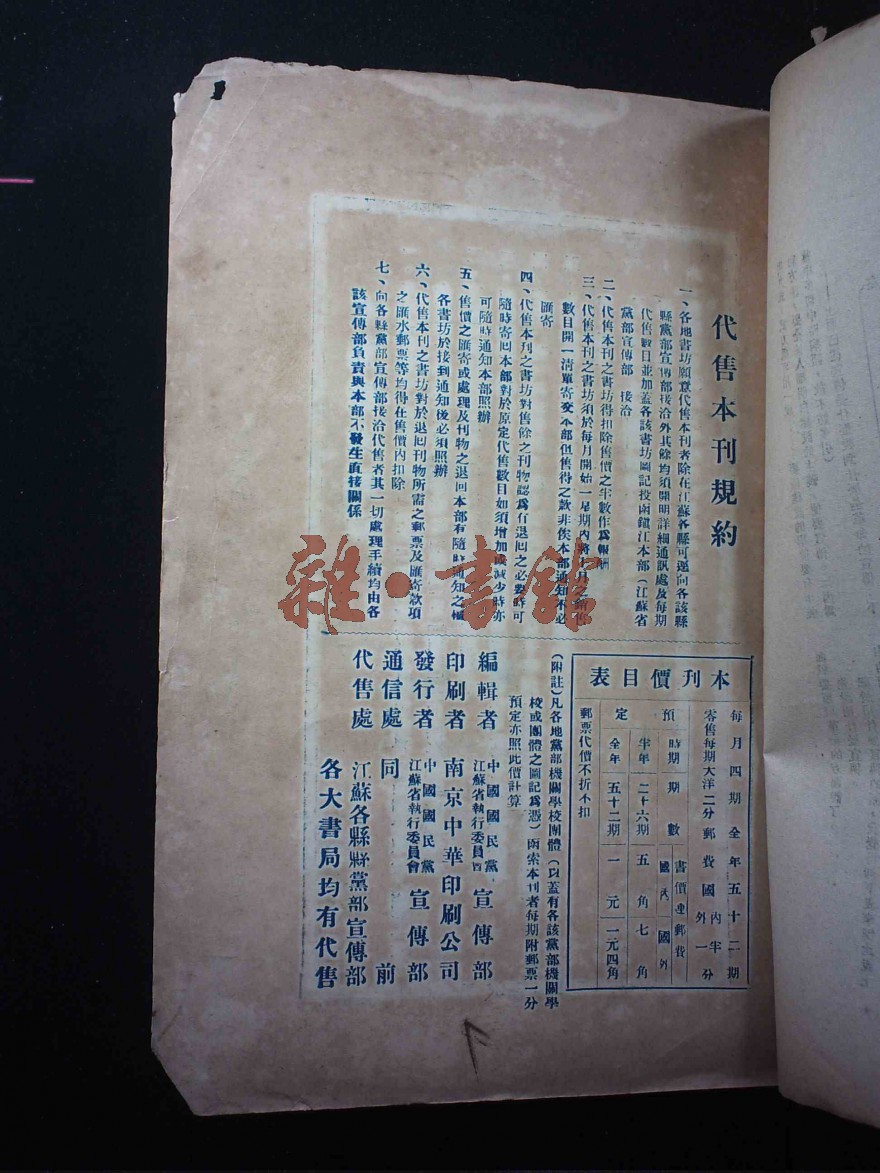 代售本刊規約
一、各地書坊願意代售本刊者除在江蘇各縣可逕向各該縣
縣黨部宣傳部接洽外其餘均須開明詳細通訊處及每期
代售數目並加蓋各該書坊圖記投函鎮江本部（江蘇省
黨部宣傳部）接洽
二、代售本刊之書坊得扣除售價之半數作爲報酬
三、代售本刊之書坊須於每月開始一星期內將
數目開一清單寄交本部但售得之款非俟本部通知不必
匯寄
四、代售本刊之書坊對售餘之刊物認爲有退囘之必要時可
隨時寄囘本部對於原定代售數目如須增加或減少時亦
可隨時通知本部照辦
五、售價之匯寄或處理及刊物之退囘本部有隨時通知之權
各書坊於接到通知後必須照辦
六、代售本刊之書坊對於退囘刊物所需之郵票及匯寄款項
之匯水郵票等均得在售價內扣除
七、向各縣黨部宣傳部接洽代售者其一切處理手續均由各
該宣傳部負責與本部不發生直接關係
本刊價目表
每月四期全年五十二期
零售每期大洋二分郵費國內半分
外一分
預定
時期 期數 書價連郵費 國內 國外
半年 二十六期 五角 七角
全年 五十二期 一元 一元四角
郵票代價不折不扣
（附註）凡各地黨部機關學校團體（以蓋有各該黨部機關學
校或團體之圖記爲憑）函索本刊者每期附郵票一分
預定亦照此價計算
編輯者 中國國民黨江蘇省執行委員會宣傳部
印刷者 南京中華印刷公司
發行者 中國國民黨江蘇省執行委員會宣傳部
通信處 同前
代售處 江蘇各縣縣黨部宣傳部
各大書局均有代售
雜·書館